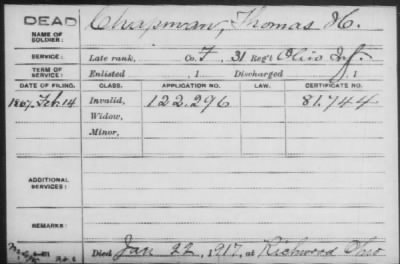 DEAD Chapman, Thomas H.
NAME OF SOLDIER:
SERVICE: Late rank, Co. F, 31 Reg't Ohio Inf.
TERM OF SERVICE: Enlisted , 1 Discharged , 1
DATE OF FILING. CLASS. APPLICATION NO. LAW. CERTIFICATE NO.
1867. Feb 14 Invalid, 122.296 81.744
Widow,
Minor,
ADDITIONAL SERVICES:
REMARKS:
Died Jan 22, 1917, at Richwood Ohio